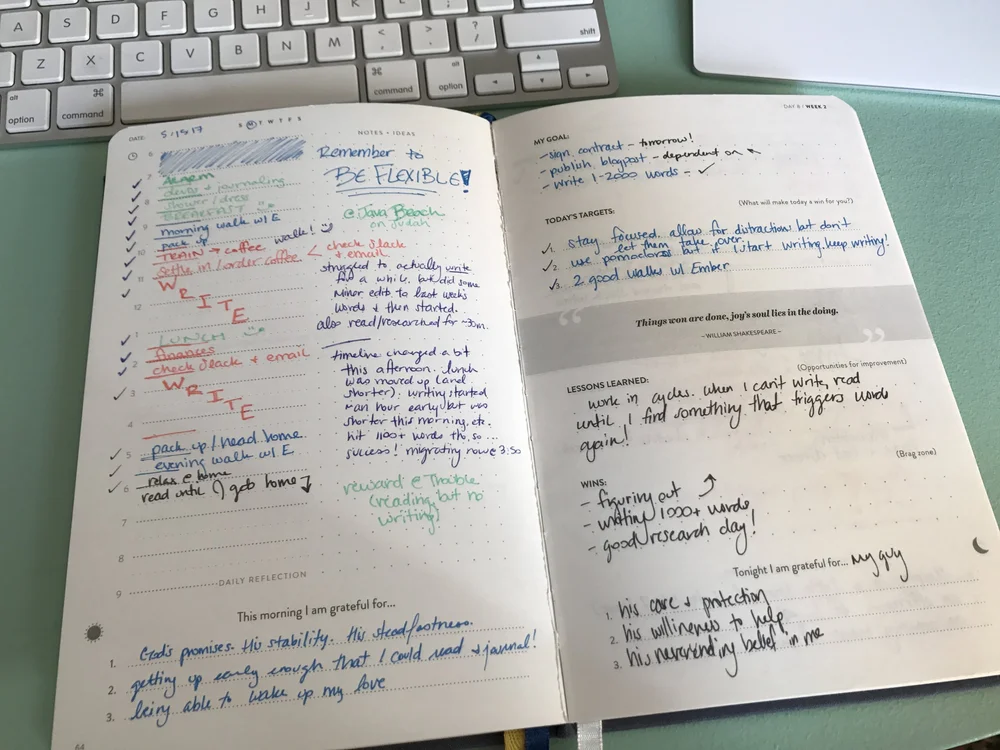 A S D F G H J K L : ; " ' return
Z X C V B N M < , > . ? / shift
alt option ⌘ command ⌘ command alt option
DATE: 5/15/17 S M T W T F S
NOTES + IDEAS
6
7
devos + journaling
shower / dress
8
BREAKFAST
9
morning walk w/ E
pack up
10
TRAIN → coffee walk!
settle in / order coffee
11
WRITE
12
1
LUNCH
finances
2
check slack + email
3
WRITE
4
5
pack up / head home
evening walk w/ E
relax @ home
6
read until () gets home
7
8
9
Remember to
BE FLEXIBLE!
@ Java Beach
on Judah
< check slack
+ email
struggled to actually write
for a while, but did some
minor edits to last week's
words + then started.
also read/researched for ~30m.
timeline changed a bit
this afternoon. lunch
was moved up (and
shorter). writing started
an hour early but was
shorter this morning, etc.
hit 1100+ words tho, so...
success! migrating now @ 3:50
reward @ Trouble
(reading, but no
writing)
DAILY REFLECTION
This morning I am grateful for...
1. God's promises. His stability. His steadfastness.
2. getting up early enough that I could read + journal!
3. being able to wake up my love
64
DAY 8 / WEEK 2
MY GOAL:
- sign contract - tomorrow!
- publish blogpost - dependent on
- write 1-2000 words - ✓
(What will make today a win for you?)
TODAY'S TARGETS:
1. stay focused. allow for distraction but don't
let them take over.
2. use pomodoros but if I start writing, keep writing!
3. 2 good walks w/ Ember
Things won are done, joy's soul lies in the doing.
~ WILLIAM SHAKESPEARE ~
(Opportunities for improvement)
LESSONS LEARNED:
work in cycles. when I can't write, read
until I find something that triggers words
again!
(Brag zone)
WINS:
- figuring out
- writing 1000+ words
- good research day!
Tonight I am grateful for... my guy
1. his care + protection
2. his willingness to help
3. his neverending belief in me